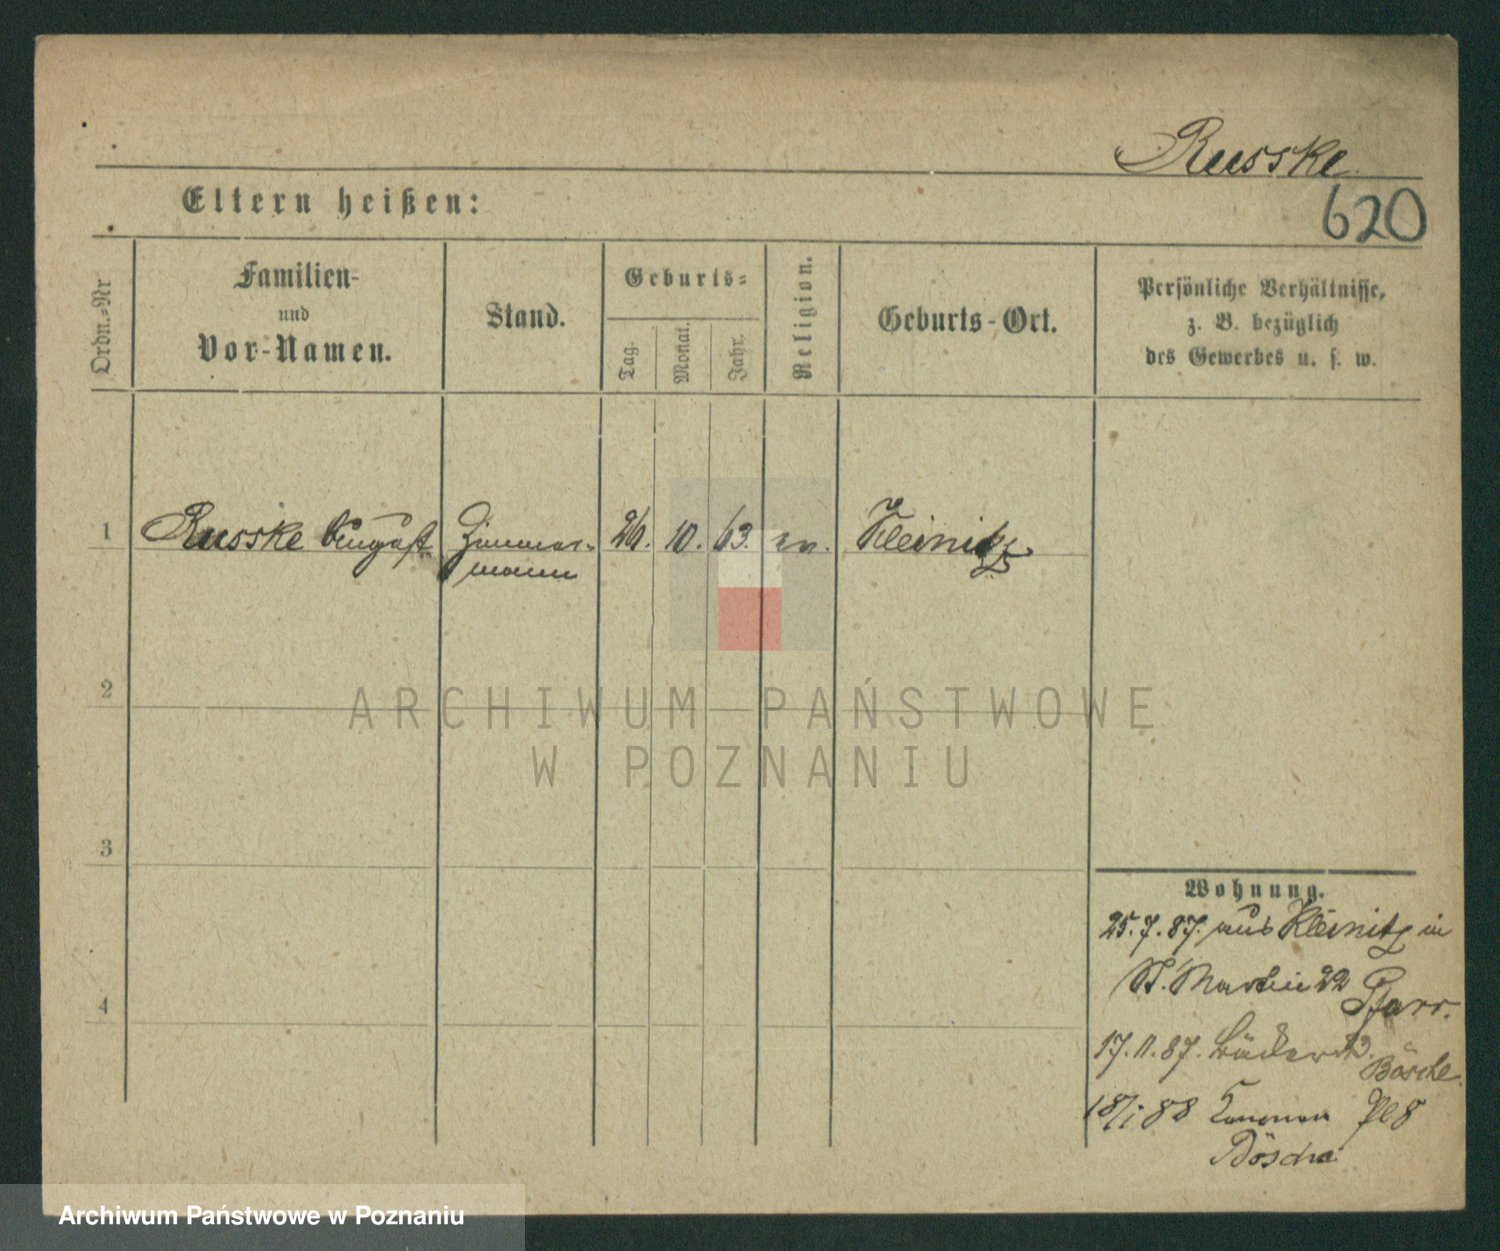 Russke
620
Eltern heißen:
Ordn.=Nr
Familien-
und
Vor-Namen.
Stand.
Geburts=
Tag.
Monat.
Jahr.
Religion.
Geburts-Ort.
Persönliche Verhältnisse,
z. B. bezüglich
des Gewerbes u. s. w.
1 Russke August Zimmer- 26. 10. 63. ev. Kleinitz
mann
2
ARCHIWUM PAŃSTWOWE
W POZNANIU
3
4
Wohnung.
25.7.87. aus Kleinitz in
St. Martin 22 Pfarr.
17.11.87. Bäckerst 13.
Bösche
18/1 88 Kanonen Pl 8
Bösche
Archiwum Państwowe w Poznaniu